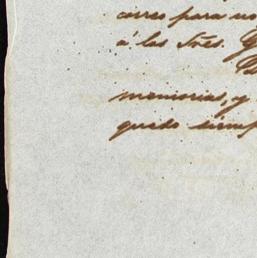 correo para no
á las Sres.
memorias, y
quedo siemp